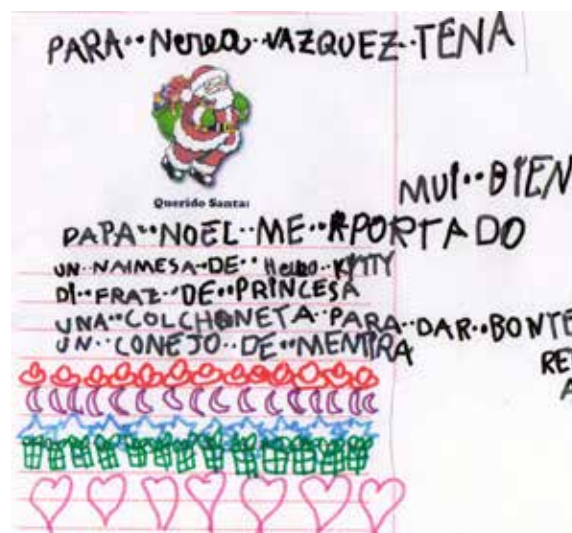 PARA·· Nerea ··VAZQUEZ··TENA
Querido Santa:
MUI··BIEN
PAPA··NOEL··ME··APORTADO
UN··NAIMESA··DE·· Hello··KITTY
DI··FRAZ··DE··PRINCESA
UNA··COLCHONETA··PARA··DAR··BONTE
UN··CONEJO··DE··MENTIRA
RE
A